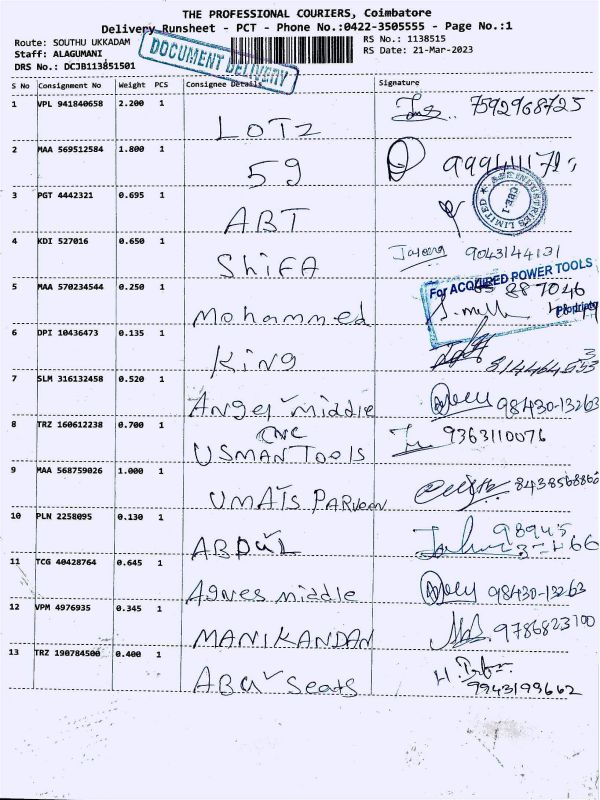 THE PROFESSIONAL COURIERS, Coimbatore
Delivery Runsheet - PCT - Phone No.:0422-3505555 - Page No.:1
Route: SOUTHU UKKADAM
RS No.: 1138515
Staff: ALAGUMANI
RS Date: 21-Mar-2023
DRS No.: DCJB113851501
DOCUMENT DELIVERY
S No Consignment No Weight PCS Consignee Details Signature
1 VPL 941840658 2.200 1 LOTZ 7592968725
2 MAA 569512584 1.800 1 59
3 PGT 4442321 0.695 1 ABT
INDUSTRIES LIMITED CBE-1
4 KDI 527016 0.650 1 ShiFA 9043144131
5 MAA 570234544 0.250 1 Mohammed
For ACQUIRED POWER TOOLS
887046
6 DPI 10436473 0.135 1 King
7 SLM 316132458 0.520 1 Angel middle 98430-13263
8 TRZ 160612238 0.700 1 CNC USMAN Tools 9363110076
9 MAA 568759026 1.000 1 UMAIS PARveen 8438568860
10 PLN 2258095 0.130 1 ABDUL 98945
11 TCG 40428764 0.645 1 Agnes middle 98430-13263
12 VPM 4976935 0.345 1 MANIKANDAN 9786823100
13 TRZ 190784500 0.400 1 ABU Seats 9943199662